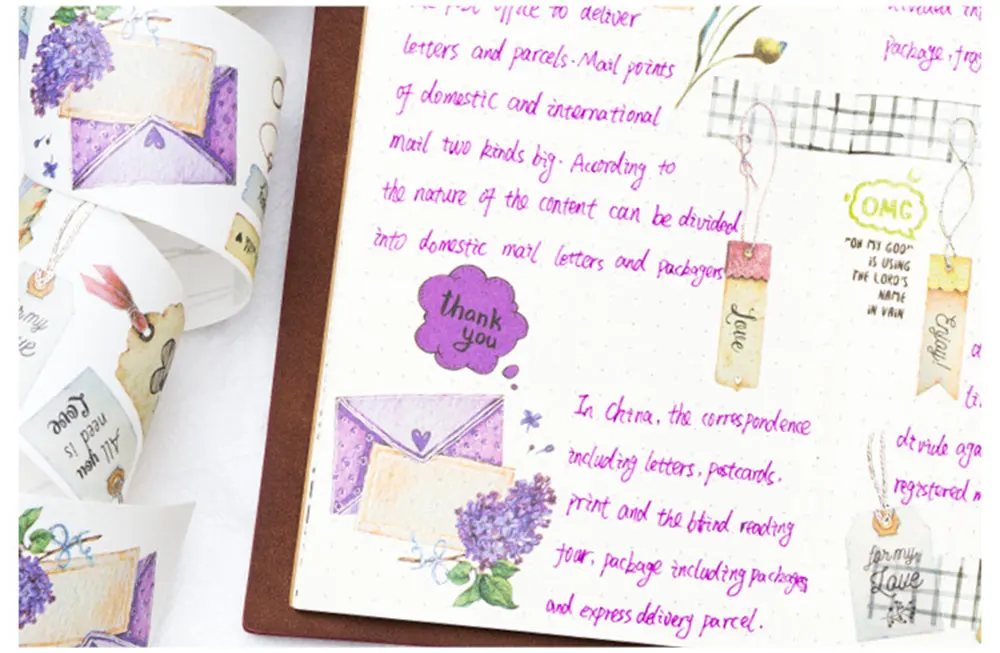 office to deliver
letters and parcels. Mail points
of domestic and international
mail two kinds big. According to
the nature of the content can be divided
into domestic mail letters and packagers
thank
you
In China, the correspondence
including letters, postcards,
print and the blind reading
four, package including packages
and express delivery parcel.
Love
package, frag
OMG
"OH MY GOD"
IS USING
THE LORD'S
NAME
IN VAIN
Enjoy!
divide aga
registered m
for my
Love
All you
need is
Love